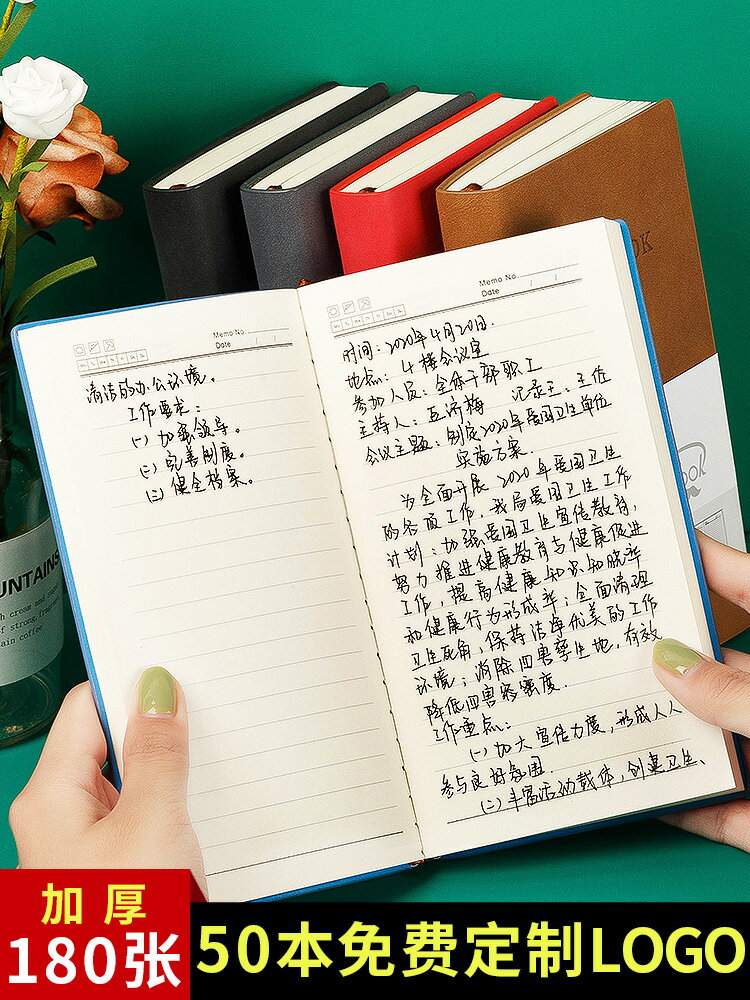 Memo No.
Date / /
Mo Tu We Th Fr Sa Su
清洁的办公环境。
工作要求：
(一) 加强领导。
(二) 完善制度。
(三) 健全档案。
Memo No.
Date / /
Mo Tu We Th Fr Sa Su
时间：2020年4月20日.
地点：4楼会议室
参加人员：全体干部职工
主持人： 记录王：王佐
会议主题：制定2020年爱国卫生单位
实施方案.
为全面开展2020年爱国卫生
的各项工作，我局爱国卫生工作
计划：加强爱国卫生宣传教育，
努力推进健康教育与健康促进
工作，提高健康知识知晓率
和健康行为形成率；全面清理
卫生死角，保持洁净优美的工作
环境；消除四害孳生地，有效
降低四害密度.
工作重点：
(一) 加大宣传力度，形成人人
参与良好氛围.
(二) 丰富活动载体，创建卫生、
OK
OOK
OUNTAINS
加厚
180张
50本免费定制LOGO